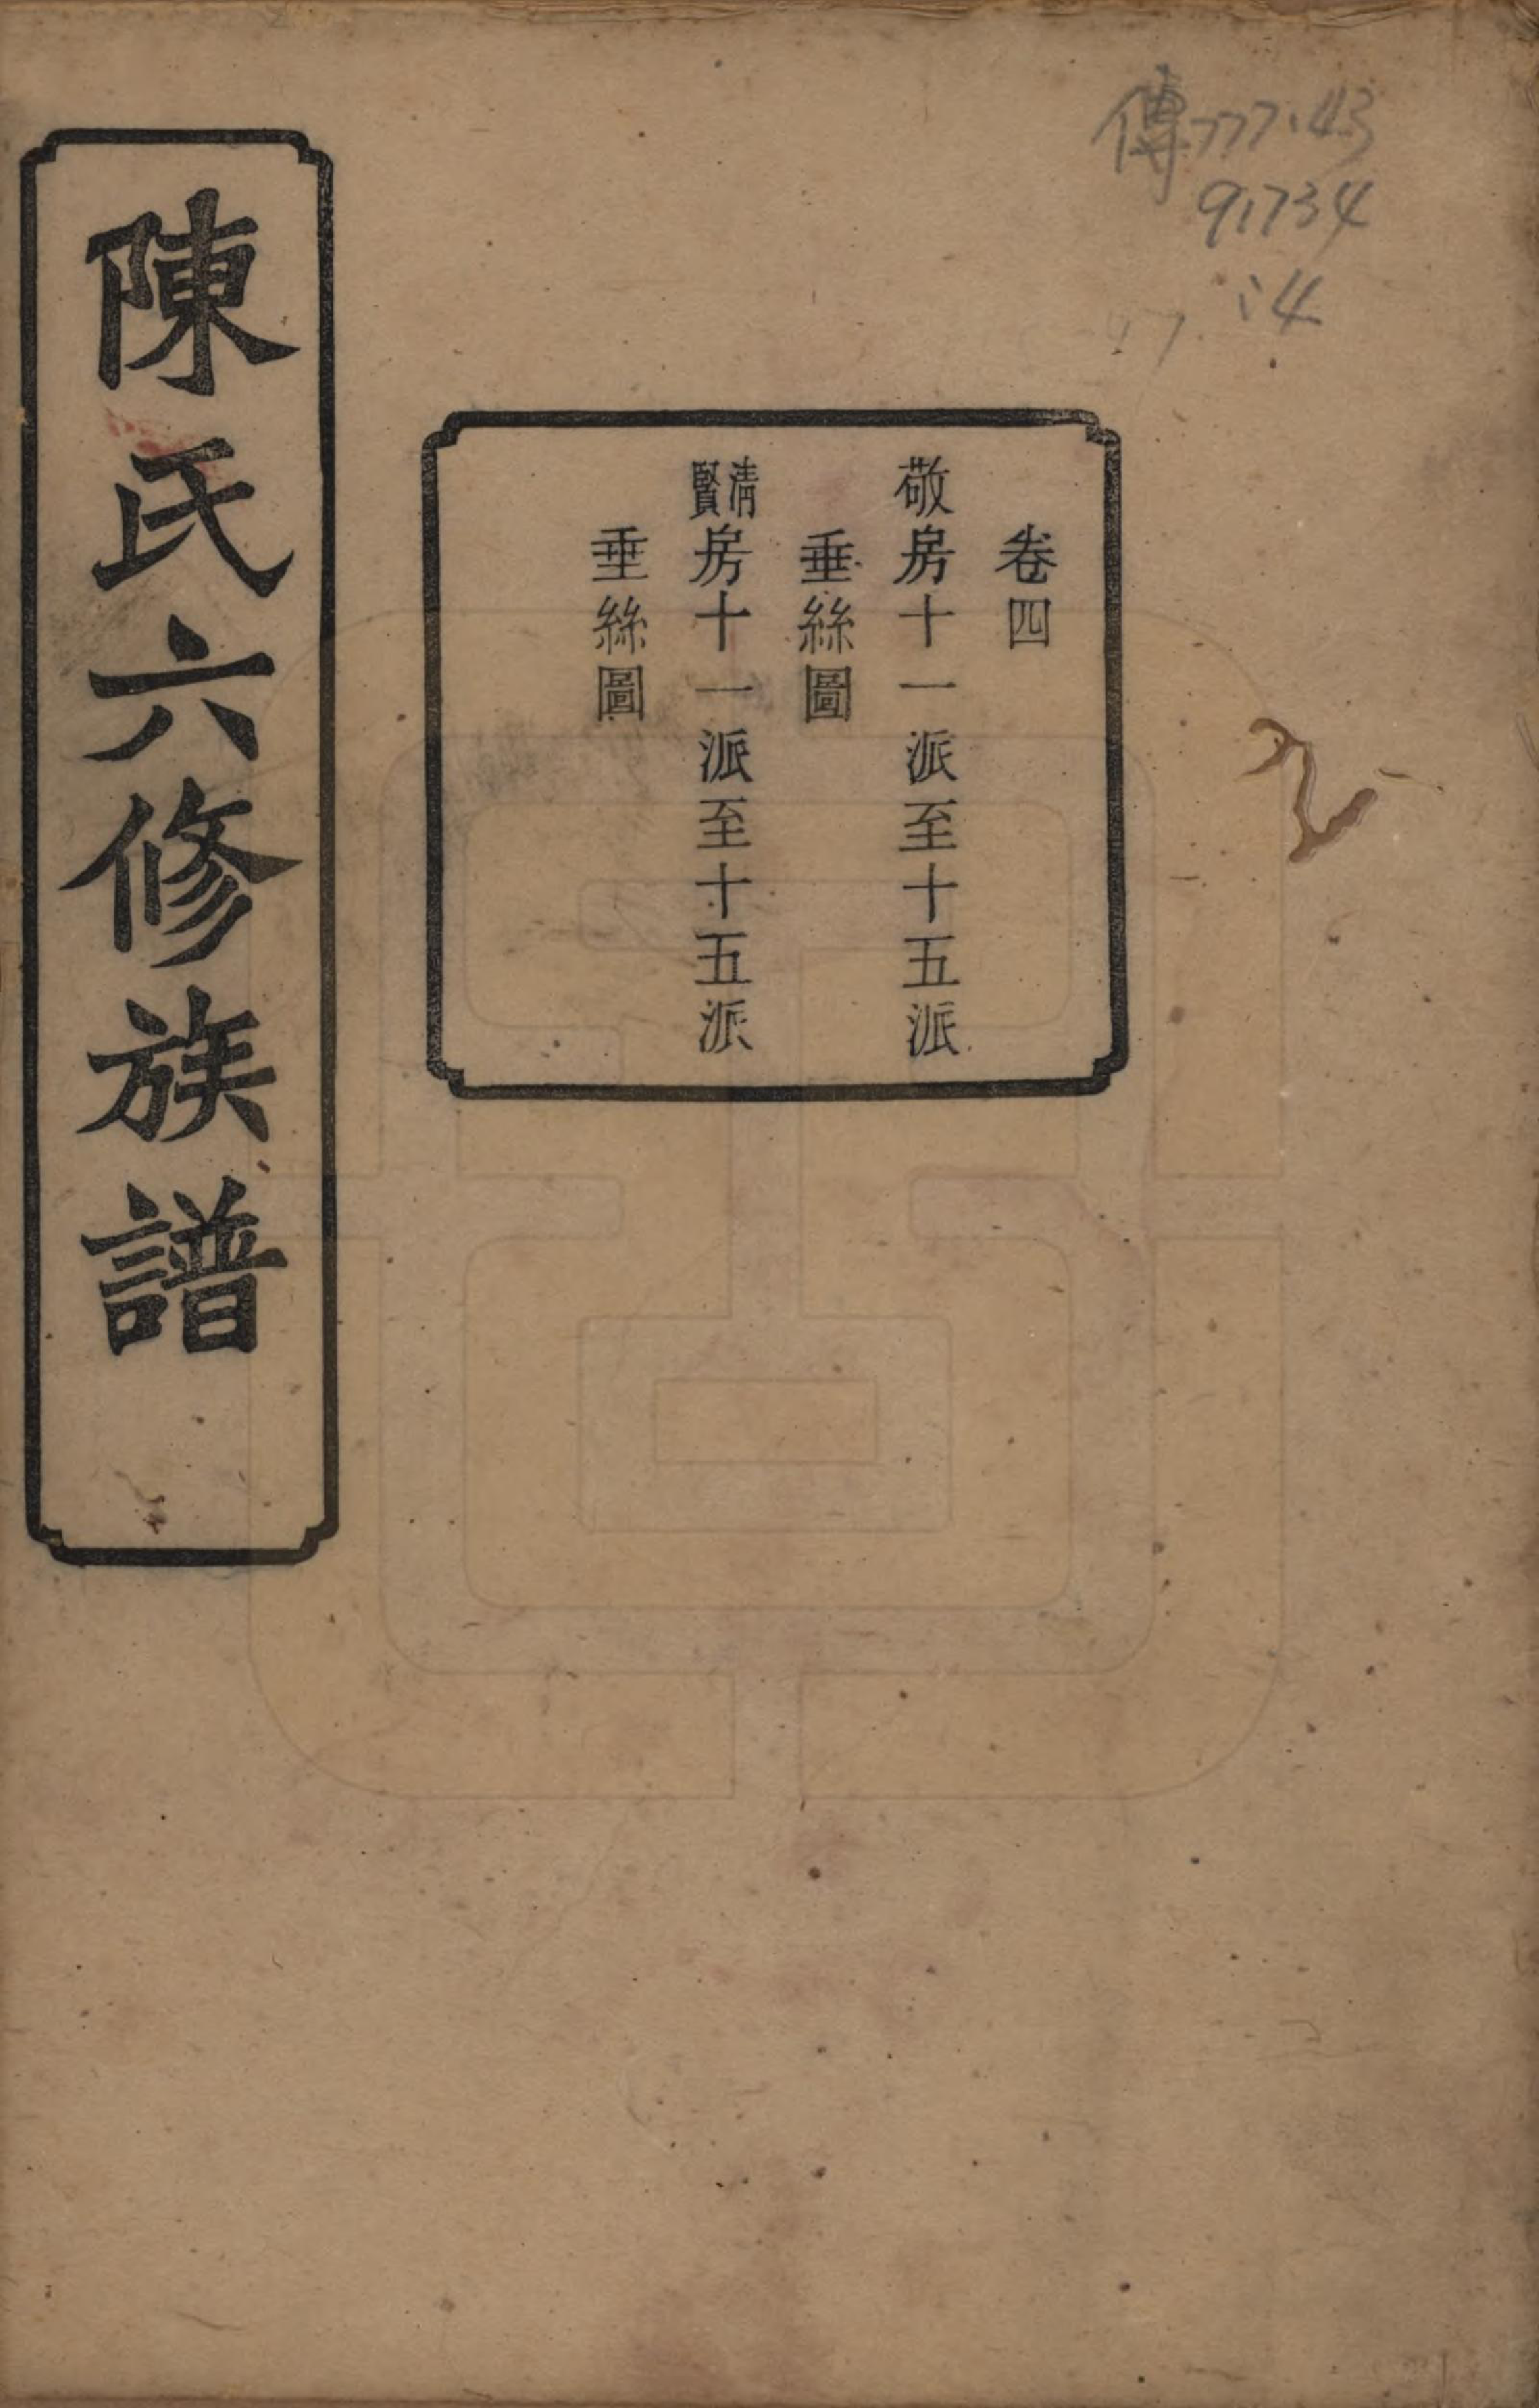 傳777.43
91734
:4
卷四
敬房十一派至十五派
垂絲圖
清賢房十一派至十五派
垂絲圖
陳氏六修族譜